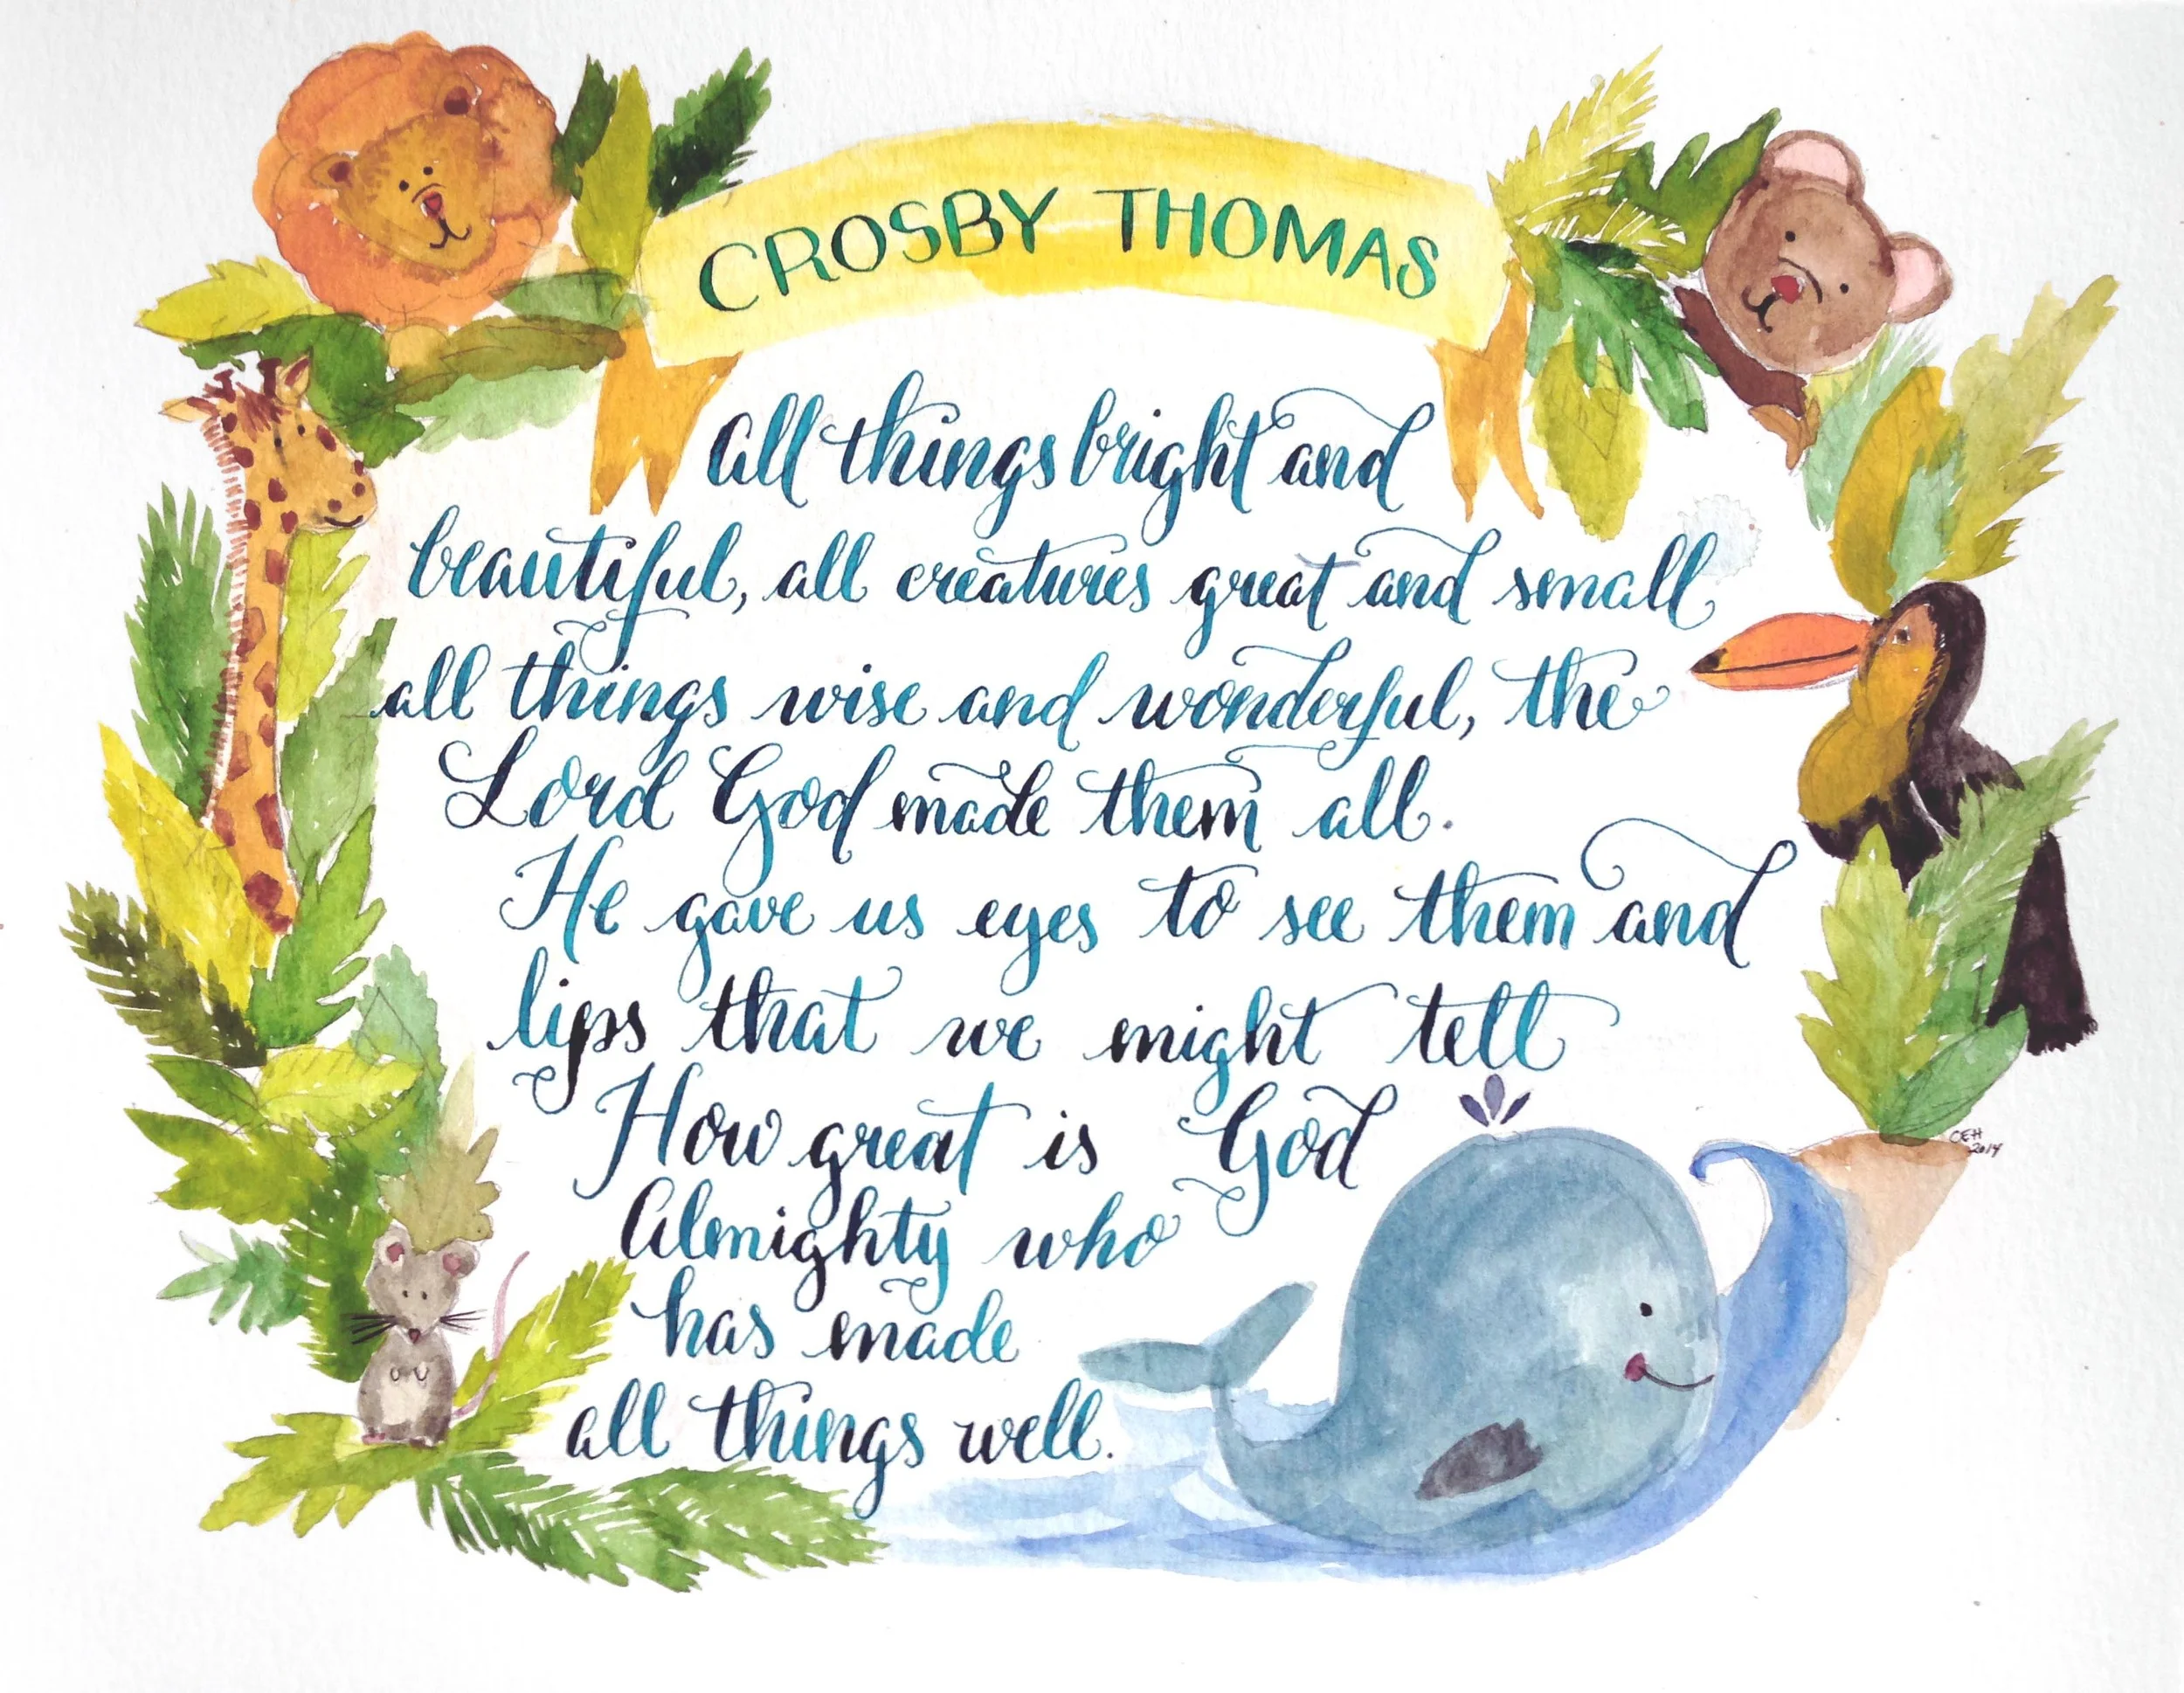 CROSBY THOMAS
All things bright and
beautiful, all creatures great and small,
all things wise and wonderful, the
Lord God made them all.
He gave us eyes to see them and
lips that we might tell
How great is God
Almighty who
has made
all things well.
CEH
2014